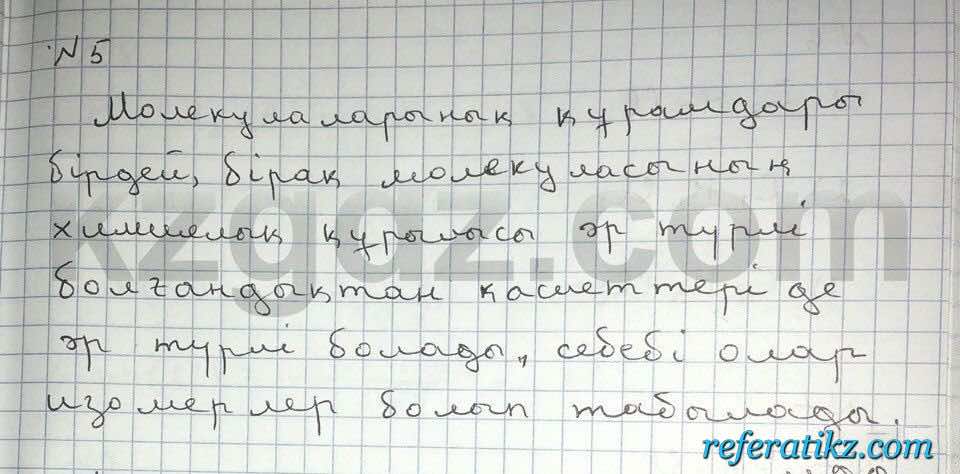 №5
Молекулаларының құрамдары
бірдей, бірақ молекуласының
химиялық құрылысы әр түрлі
болғандықтан қасиеттері де
әр түрлі болады, себебі олар
изомерлер болып табылады.
kzgaz.com
referatikz.com